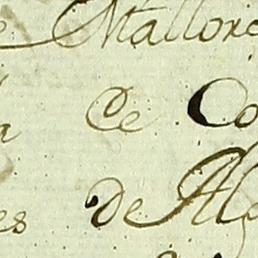 Mallorc
a de Co
es de Al